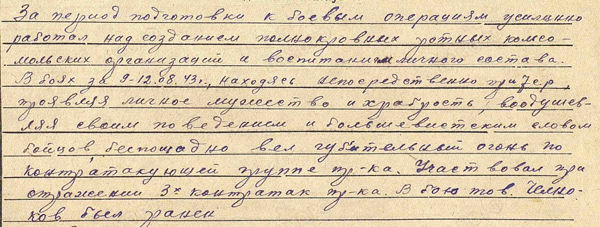 За период подготовки к боевым операциям усиленно
работал над созданием полнокровных ротных комсо-
мольских организаций и воспитанием личного состава.
В боях за 9-12.08.43г., находясь непосредственно при
проявляя личное мужество и храбрость, воодушев-
ляя своим поведением и большевистским словом
бойцов, беспощадно вел губительный огонь по
контратакующей группе пр-ка. Участвовал при
отражении 3х контратак пр-ка. В бою тов. Челно-
ков был ранен